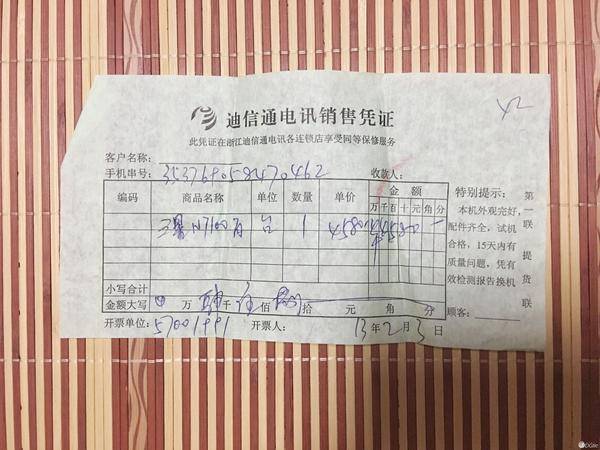 迪信通电讯销售凭证
42
此凭证在浙江迪信通电讯各连锁店享受同等保修服务
客户名称:
手机串号: 收款人:
编码 商品名称 单位 数量 单价 金额
万 千 百 十 元 角 分
三星N7100 台 1 4580
小写合计
金额大写 万 肆 千 伍 佰 捌 拾 元 角 分
开票单位: 57001991 开票人: 13年2月3日
特别提示:
本机外观完好,
配件齐全,试机
合格,15天内有
质量问题,凭有
效检测报告换机
顾客:
第一联提货联